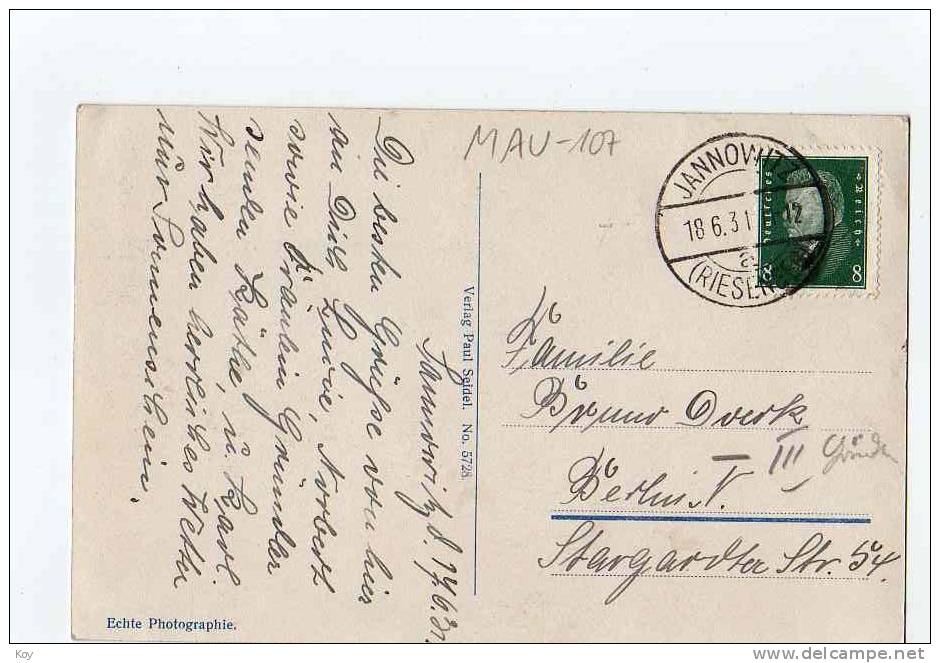 MAU-107
JANNOWITZ
18.6.31
12
a
(RIESEN
Deutsches Reich
8 8
Jannowitz d. 17/6.31.
Die besten Grüße von hier
an Dich, Norbert
sowie Fräulein Gründler
senden Käthe, u. Karl.
Wir haben herrliches Wetter
nur Sonnenschein.
Verlag Paul Seidel. No. 5728.
Echte Photographie.
Familie
Bruno
III
Berlin N.
Stargardter Str. 54.
Koy
www.delcampe.net